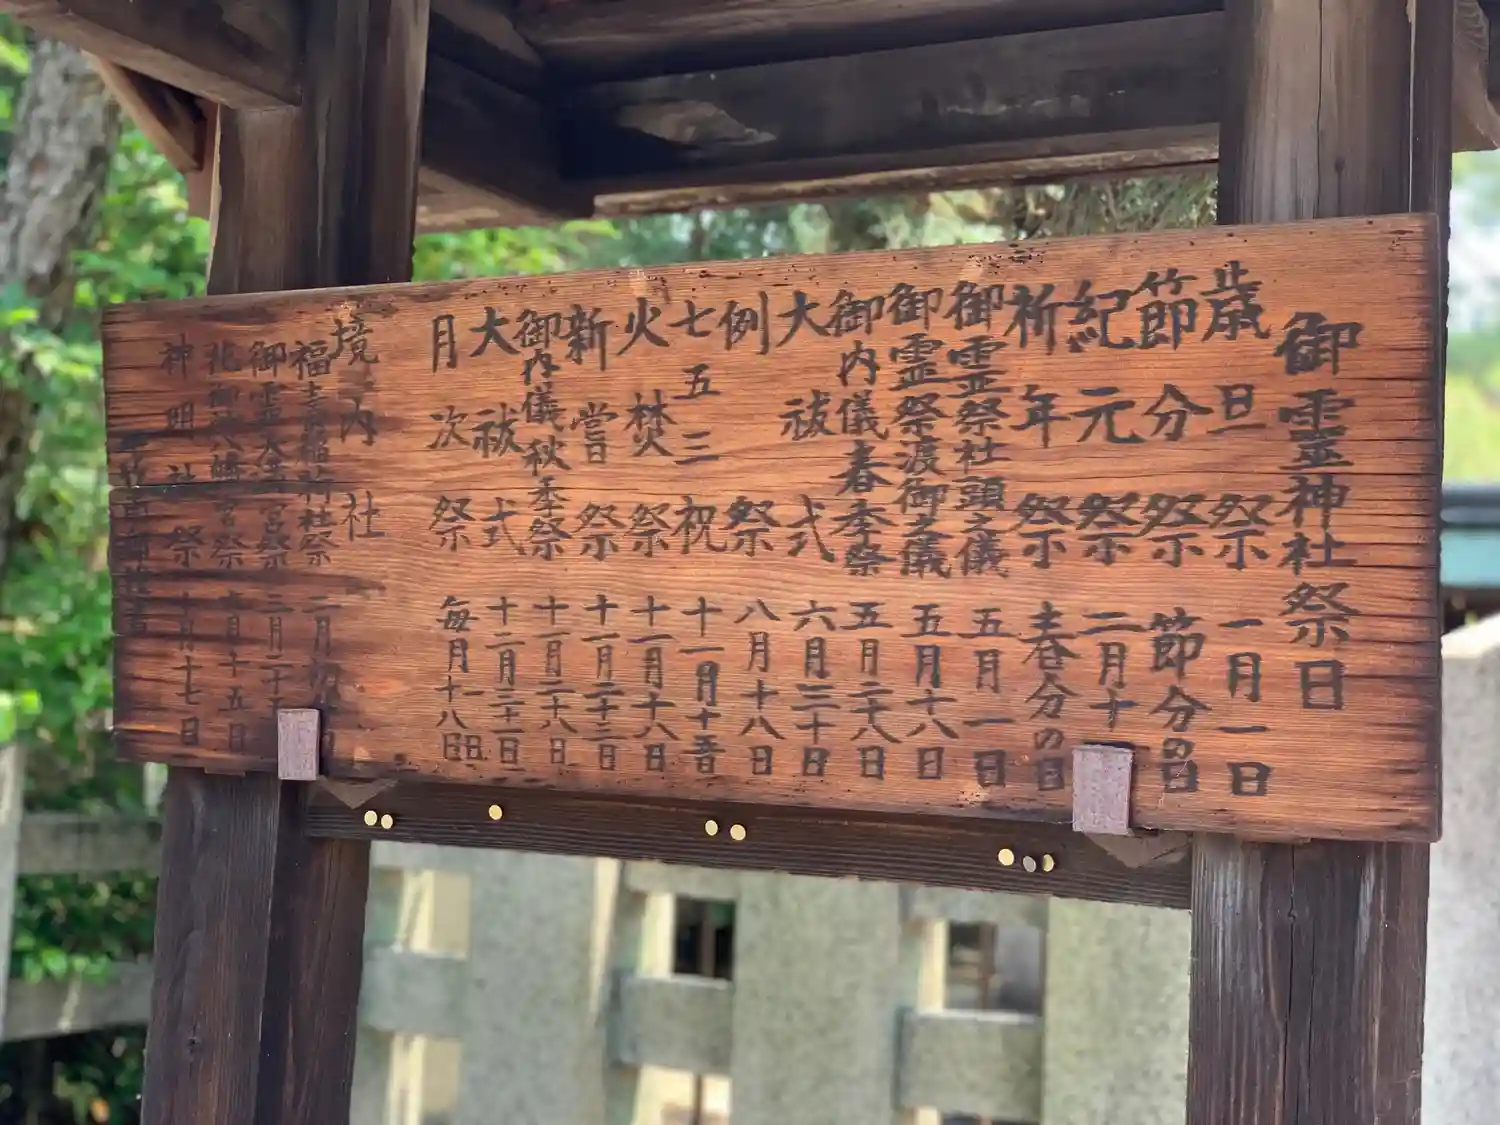 御霊神社祭日
歳旦祭 一月一日
節分祭 節分の日
紀元祭 二月十一日
祈年祭 春分の日
御霊祭社頭之儀 五月一日
御霊祭渡御之儀 五月十八日
御内儀春季祭 五月二十八日
大祓式 六月三十日
例祭 八月十八日
七五三祝 十一月十五日
火焚祭 十一月十八日
新嘗祭 十一月二十三日
御内儀秋季祭 十一月二十八日
大祓式 十二月三十一日
月次祭 毎月一日十八日
境内社
福寿稲荷社祭 二月
御霊天満宮祭 二月二十五
八幡宮祭 十月十五日
神明社祭 十月十七日